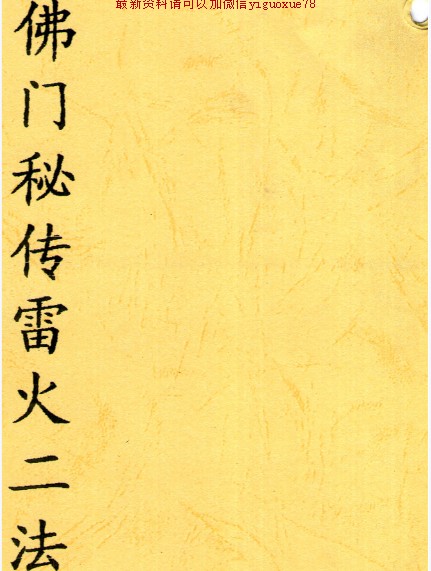 最新资料请可以加微信yiguoxue78
佛门秘传雷火二法